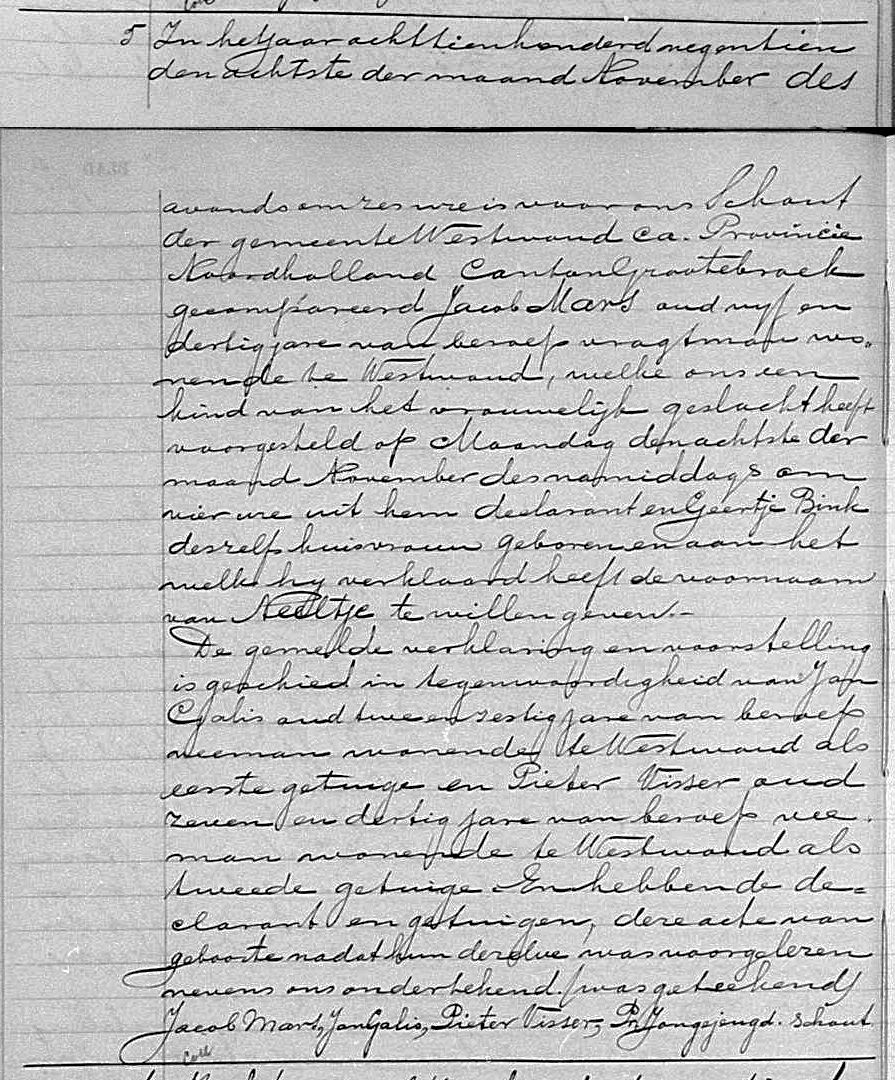 5 In het Jaar achttienhonderd negentien
den achtste der maand November des
avonds om zes ure is voor ons Schout
der gemeente Westwoud ca. Provincie
Noordholland Canton Grootebroek
gecompareerd Jacob Mars oud vyf en
dertig jare van beroep vragtman wo„
nende te Westwoud, welke ons een
kind van het vrouwelijk geslacht heeft
voorgesteld op Maandag den achtste der
maand November des namiddags om
vier ure uit hem declarant en Geertje Bink
deszelfs huisvrouw geboren en aan het
welk hy verklaard heeft de voornaam
van Neeltje te willen geven.-
De gemelde verklaring en voorstelling
is geschied in tegenwoordigheid van Jan
Galis oud twee en zestig jare van beroep
veeman wonende te Westwoud als
eerste getuige en Pieter Visser oud
zeven en dertig jare van beroep vee.
man wonende te Westwoud als
tweede getuige En hebbende de=
clarant en getuigen, deze acte van
geboorte nadat hun dezelve was voorgelezen
nevens ons ondertekend. /was geteekend/
Jacob Mars, Jan Galis, Pieter Visser, Pr Jongejeugd. schout